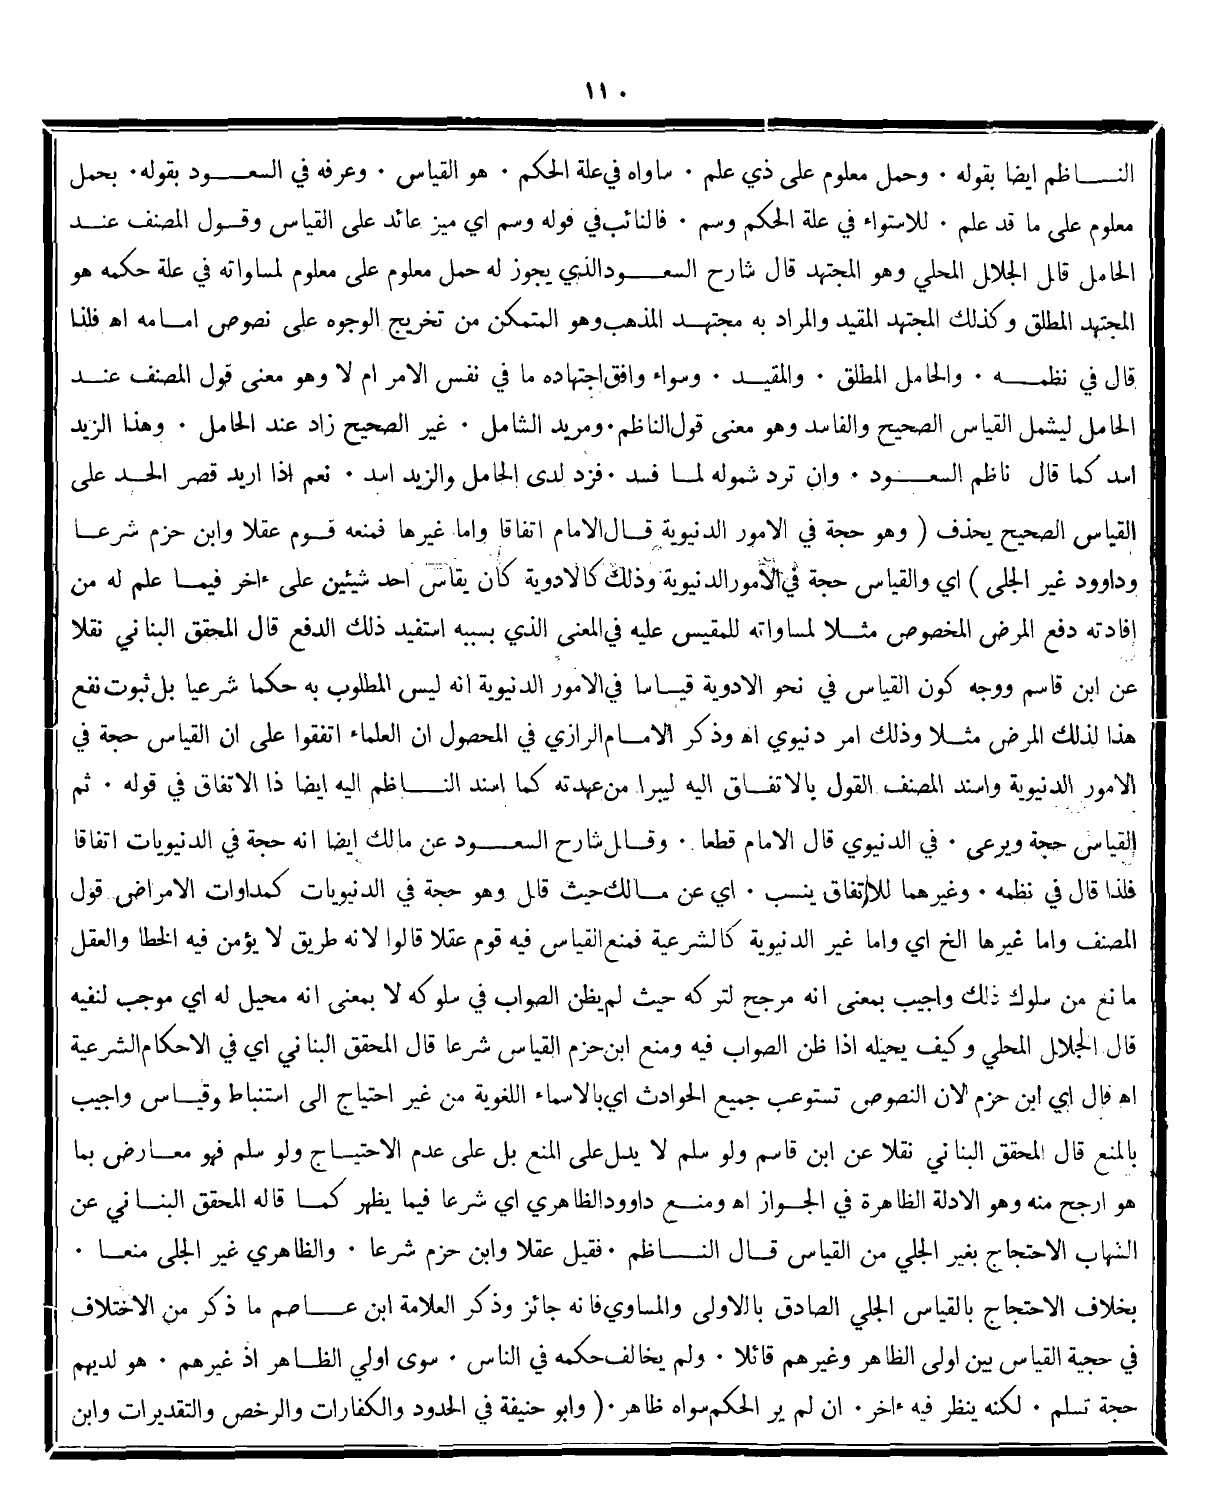 ١١٠
النـــاظم ايضا بقوله · وحمل معلوم على ذي علم · ساواه في علة الحكم · هو القياس · وعرفه في السعـــود بقوله · بحمل
معلوم على ما قد علم · للاستواء في علة الحكم وسم · فالنائب في قوله وسم اي ميز عائد على القياس وقـول المصنف عنـد
الحامل قال الجلال المحلي وهو المجتهد قال شارح السعـــود الذي يجوز له حمل معلوم على معلوم لمساواته في علة حكمه هو
المجتهد المطلق وكذلك المجتهد المقيد والمراد به مجتهـد المذهب وهو المتمكن من تخريج الوجوه على نصوص امـامه اه فلذا
قال في نظمــه · والحامل المطلق · والمقيـد · وسواء وافق اجتهاده ما في نفس الامر ام لا وهو معنى قول المصنف عنـد
الحامل ليشمل القياس الصحيح والفاسد وهو معنى قول الناظم · ومريد الشامل · غير الصحيح زاد عند الحامل · وهذا الزيد
اسد كما قال ناظم السعـــود · وان ترد شموله لمـا فسد · فزد لدى الحامل والزيد اسد · نعم اذا اريد قصر الحـد على
القياس الصحيح يحذف ( وهو حجة في الامور الدنيوية قـال الامام اتفاقا واما غيرها فمنعه قـوم عقلا وابن حزم شرعـا
وداوود غير الجلى ) اي والقياس حجة في الأمور الدنيوية وذلك كالادوية كأن يقاس احد شيئين على ءاخر فيمـا علم له من
افادته دفع المرض المخصوص مثـلا لمساواته للمقيس عليه في المعنى الذي بسببه استفيد ذلك الدفع قال المحقق البناني نقلا
عن ابن قاسم ووجه كون القياس في نحو الادوية قيـاسا في الامور الدنيوية انه ليس المطلوب به حكما شرعيا بل ثبوت نفع
هذا لذلك المرض مثـلا وذلك امر دنيوي اه وذكر الامـام الرازي في المحصول ان العلماء اتفقوا على ان القياس حجة في
الامور الدنيوية واسند المصنف القول بالاتفـاق اليه ليبرا من عهدته كما اسند النـــاظم اليه ايضا ذا الاتفاق في قوله · ثم
القياس حجة ويرعى · في الدنيوي قال الامام قطعا · وقـال شارح السعـــود عن مالك ايضا انه حجة في الدنيويات اتفاقا
فلذا قال في نظمه · وغيرهما للاتفاق ينسب · اي عن مـالك حيث قال وهو حجة في الدنيويات كمداوات الامراض قول
المصنف واما غيرها الخ اي واما غير الدنيوية كالشرعية فمنع القياس فيه قوم عقلا قالوا لانه طريق لا يؤمن فيه الخطا والعقل
مانع من سلوك ذلك واجيب بمعنى انه مرجح لتركه حيث لم يظن الصواب في سلوكه لا بمعنى انه محيل له اي موجب لنفيه
قال الجلال المحلي وكيف يحيله اذا ظن الصواب فيه ومنع ابن حزم القياس شرعا قال المحقق البناني اي في الاحكام الشرعية
اه قال اي ابن حزم لان النصوص تستوعب جميع الحوادث اي بالاسماء اللغوية من غير احتياج الى استنباط وقيـاس واجيب
بالمنع قال المحقق البناني نقلا عن ابن قاسم ولو سلم لا يدل على المنع بل على عدم الاحتيـاج ولو سلم فهو معـارض بما
هو ارجح منه وهو الادلة الظاهرة في الجـواز اه ومنـع داوود الظاهري اي شرعا فيما يظهر كمـا قاله المحقق البنـاني عن
الشهاب الاحتجاج بغير الجلي من القياس قـال النـــاظم · فقيل عقلا وابن حزم شرعا · والظاهري غير الجلى منعـا ·
بخلاف الاحتجاج بالقياس الجلي الصادق بالاولى والمساوي فانه جائز وذكر العلامة ابن عـــاصم ما ذكر من الاختلاف
في حجية القياس بين اولى الظاهر وغيرهم قائلا · ولم يخالف حكمه في الناس · سوى اولي الظـاهر اذ غيرهم · هو لديهم
حجة تسلم · لكنه ينظر فيه ءاخر · ان لم ير الحكم سواه ظاهر · ( وابو حنيفة في الحدود والكفارات والرخص والتقديرات وابن